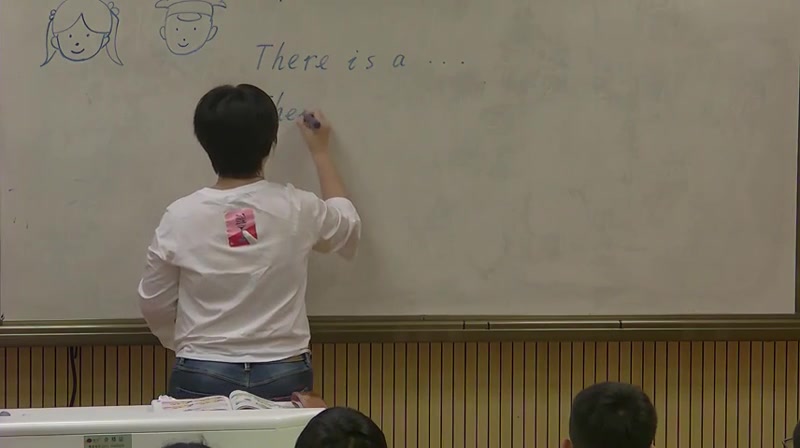 There is a ...
The